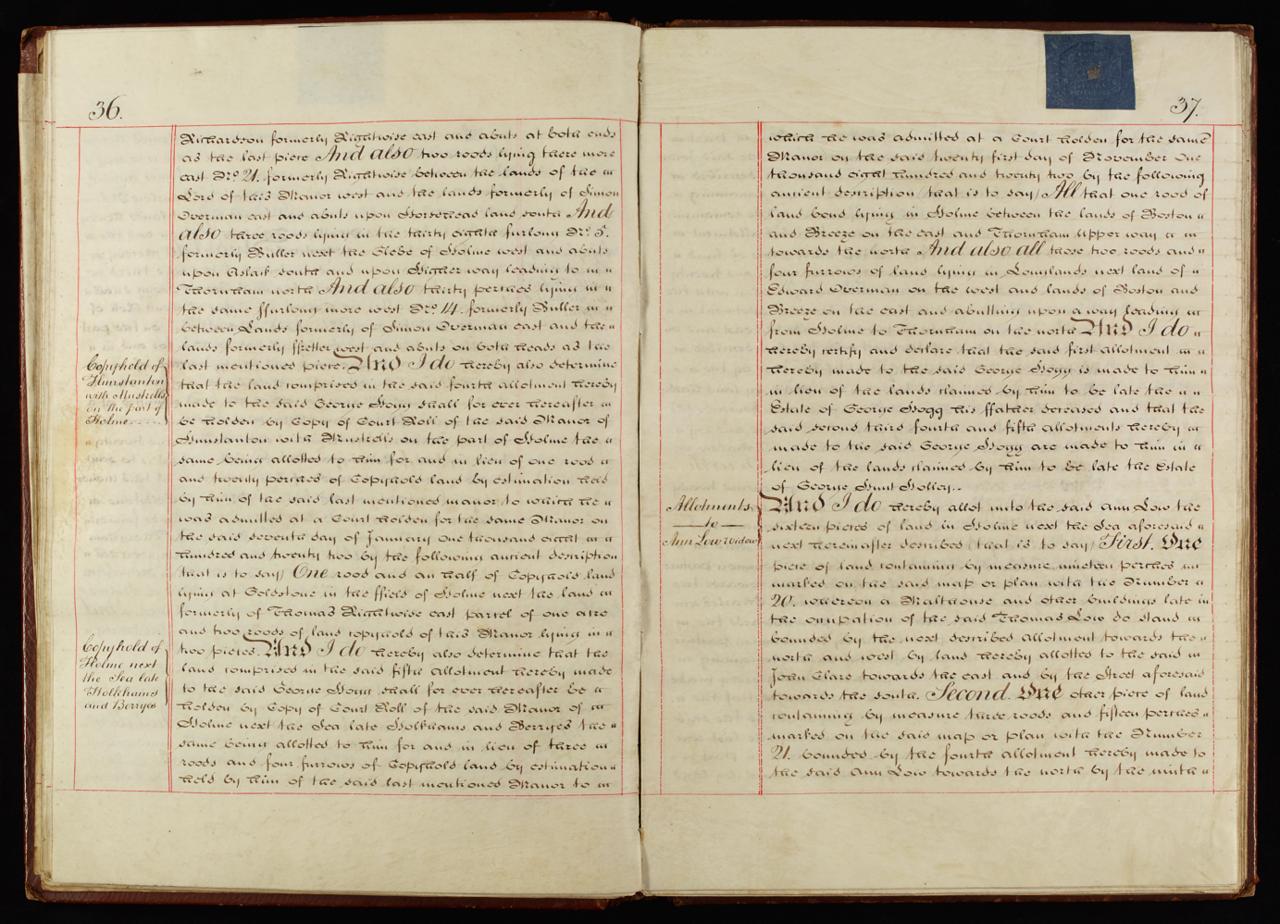 36.
Richardson formerly Rightwise east and abuts at both ends
as the last piece And also two roods lying there more
east No. 21. formerly Rightwise between the lands of the
Lord of this Manor west and the lands formerly of Simon
Overman east and abuts upon Horsehead land south And
also three roods lying in the thirty eighth furlong No. 5.
formerly Buller next the Glebe of Holme west and abuts
upon Aslack south and upon Higher way leading to
Thornham north And also thirty perches lying in
the same ffurlong more west No. 14. formerly Buller
between Lands formerly of Simon Overman east and the
lands formerly west and abuts on both heads as the
last mentioned piece. And I do hereby also determine
that the land comprised in the said fourth allotment hereby
made to the said George Hogg shall for ever hereafter
be holden by Copy of Court Roll of the said Manor of
Hunstanton with Mustrells on the part of Holme the
same being allotted to him for and in lieu of one rood
and twenty perches of Copyhold land by estimation held
by him of the said last mentioned manor to which he
was admitted at a Court holden for the same Manor on
the said seventh day of January one thousand eight
hundred and twenty two by the following ancient description
that is to say) One rood and an half of Copyhold land
lying at Goldstone in the ffield of Holme next the land
formerly of Thomas Rightwise east parcel of one acre
and two roods of land copyhold of this Manor lying in
two pieces. And I do hereby also determine that the
land comprised in the said fifth allotment hereby made
to the said George Hogg shall for ever hereafter be
holden by Copy of Court Roll of the said Manor of
Holme next the Sea late Holkhams and Berryes the
same being allotted to him for and in lieu of three
roods and four furrows of Copyhold land by estimation
held by him of the said last mentioned Manor to
Copyhold of
Hunstanton
with Mustrells
on the part of
Holme
Copyhold of
Holme next
the Sea late
Holkhams
and Berryes
37.
which he was admitted at a Court holden for the same
Manor on the said twenty first day of November One
thousand eight hundred and twenty two by the following
ancient description (that is to say) All that one rood of
land bond lying in Holme between the lands of Boston
and Breeze on the east and Thornham Upper way
towards the north And also all those two roods and
four furrows of land lying in Longlands next land of
Edward Overman on the west and lands of Boston and
Breeze on the east and abutting upon a way leading
from Holme to Thornham on the north And I do
hereby certify and declare that the said first allotment
hereby made to the said George Hogg is made to him
in lieu of the lands claimed by him to be late the
Estate of George Hogg his ffather deceased and that the
said second third fourth and fifth allotments hereby
made to the said George Hogg are made to him in
lieu of the lands claimed by him to be late the Estate
of George Hunt Holley..
And I do hereby allot unto the said Ann Low the
sixteen pieces of land in Holme next the Sea aforesaid
next hereinafter described (that is to say) First. One
piece of land containing by measure nineteen perches
marked on the said map or plan with the Number
20. whereon a Malthouse and other buildings late in
the occupation of the said Thomas Low do stand
bounded by the next described allotment towards the
north and west by land hereby allotted to the said
John Clare towards the east and by the Street aforesaid
towards the south. Second. One other piece of land
containing by measure three roods and fifteen perches
marked on the said map or plan with the Number
21. bounded by the fourth allotment hereby made to
the said Ann Low towards the north by the ninth
Allotments
to
Ann Low widow